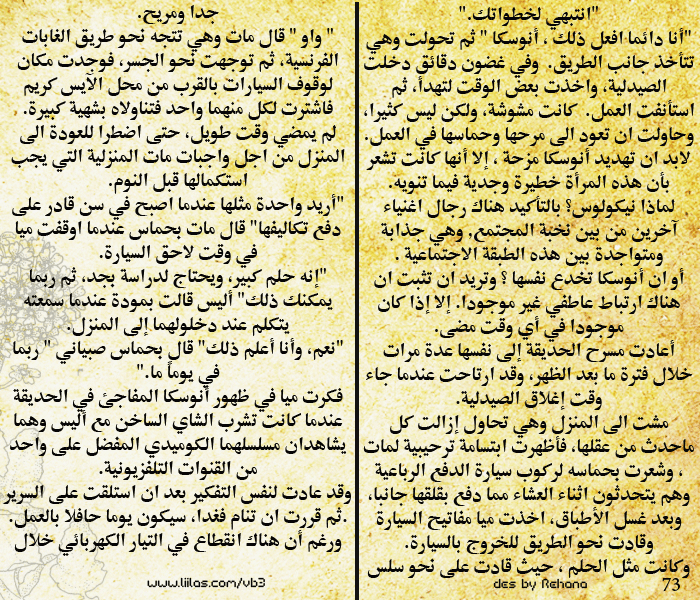 "انتبهي لخطواتك."
"أنا دائما افعل ذلك ، أنوسكا " ثم تحولت وهي
تتأخذ جانب الطريق. وفي غضون دقائق دخلت
الصيدلية، واخذت بعض الوقت لتهدأ، ثم
استأنفت العمل. كانت مشوشة، ولكن ليس كثيرا،
وحاولت ان تعود الى مرحها وحماسها في العمل.
لابد ان تهديد أنوسكا مزحة ، إلا أنها كانت تشعر
بأن هذه المرأة خطيرة وجدية فيما تنويه.
لماذا نيكولوس؟ بالتأكيد هناك رجال اغنياء
آخرين من بين نخبة المجتمع, وهي جذابة
ومتواجدة بين هذه الطبقة الاجتماعية .
أو ان أنوسكا تخدع نفسها ؟ وتريد ان تثبت ان
هناك ارتباط عاطفي غير موجودا. إلا إذا كان
موجودا في أي وقت مضى.
أعادت مسرح الحديقة إلى نفسها عدة مرات
خلال فترة ما بعد الظهر، وقد ارتاحت عندما جاء
وقت إغلاق الصيدلية.
مشت الى المنزل وهي تحاول إزالت كل
ماحدث من عقلها، فأظهرت ابتسامة ترحيبية لمات
، وشعرت بحماسه لركوب سيارة الدفع الرباعية
وهم يتحدثون اثناء العشاء مما دفع بقلقها جانبا،
وبعد غسل الأطباق، اخذت ميا مفاتيح السيارة
وقادت نحو الطريق للخروج بالسيارة.
وكانت مثل الحلم ، حيث قادت على نحو سلس
73
des by Rehana
جدا ومريح.
" واو " قال مات وهي تتجه نحو طريق الغابات
الفرنسية، ثم توجهت نحو الجسر، فوجدت مكان
لوقوف السيارات بالقرب من محل الآيس كريم
فاشترت لكل منهما واحد فتناولاه بشهية كبيرة.
لم يمضي وقت طويل، حتى اضطرا للعودة الى
المنزل من اجل واجبات مات المنزلية التي يجب
استكمالها قبل النوم.
"أريد واحدة مثلها عندما اصبح في سن قادر على
دفع تكاليفها" قال مات بحماس عندما اوقفت ميا
في وقت لاحق السيارة.
"إنه حلم كبير، ويحتاج لدراسة بجد، ثم ربما
يمكنك ذلك" أليس قالت بمودة عندما سمعته
يتكلم عند دخلولهما إلى المنزل.
"نعم، وأنا أعلم ذلك" قال بحماس صبياني " ربما
في يوماً ما."
فكرت ميا في ظهور أنوسكا المفاجئ في الحديقة
عندما كانت تشرب الشاي الساخن مع أليس وهما
يشاهدان مسلسلهما الكوميدي المفضل على واحد
من القنوات التلفزيونية.
وقد عادت لنفس التفكير بعد ان استلقت على السرير
.ثم قررت ان تنام فغدا، سيكون يوما حافلا بالعمل.
ورغم أن هناك انقطاع في التيار الكهربائي خلال
www.liilas.com/vb3